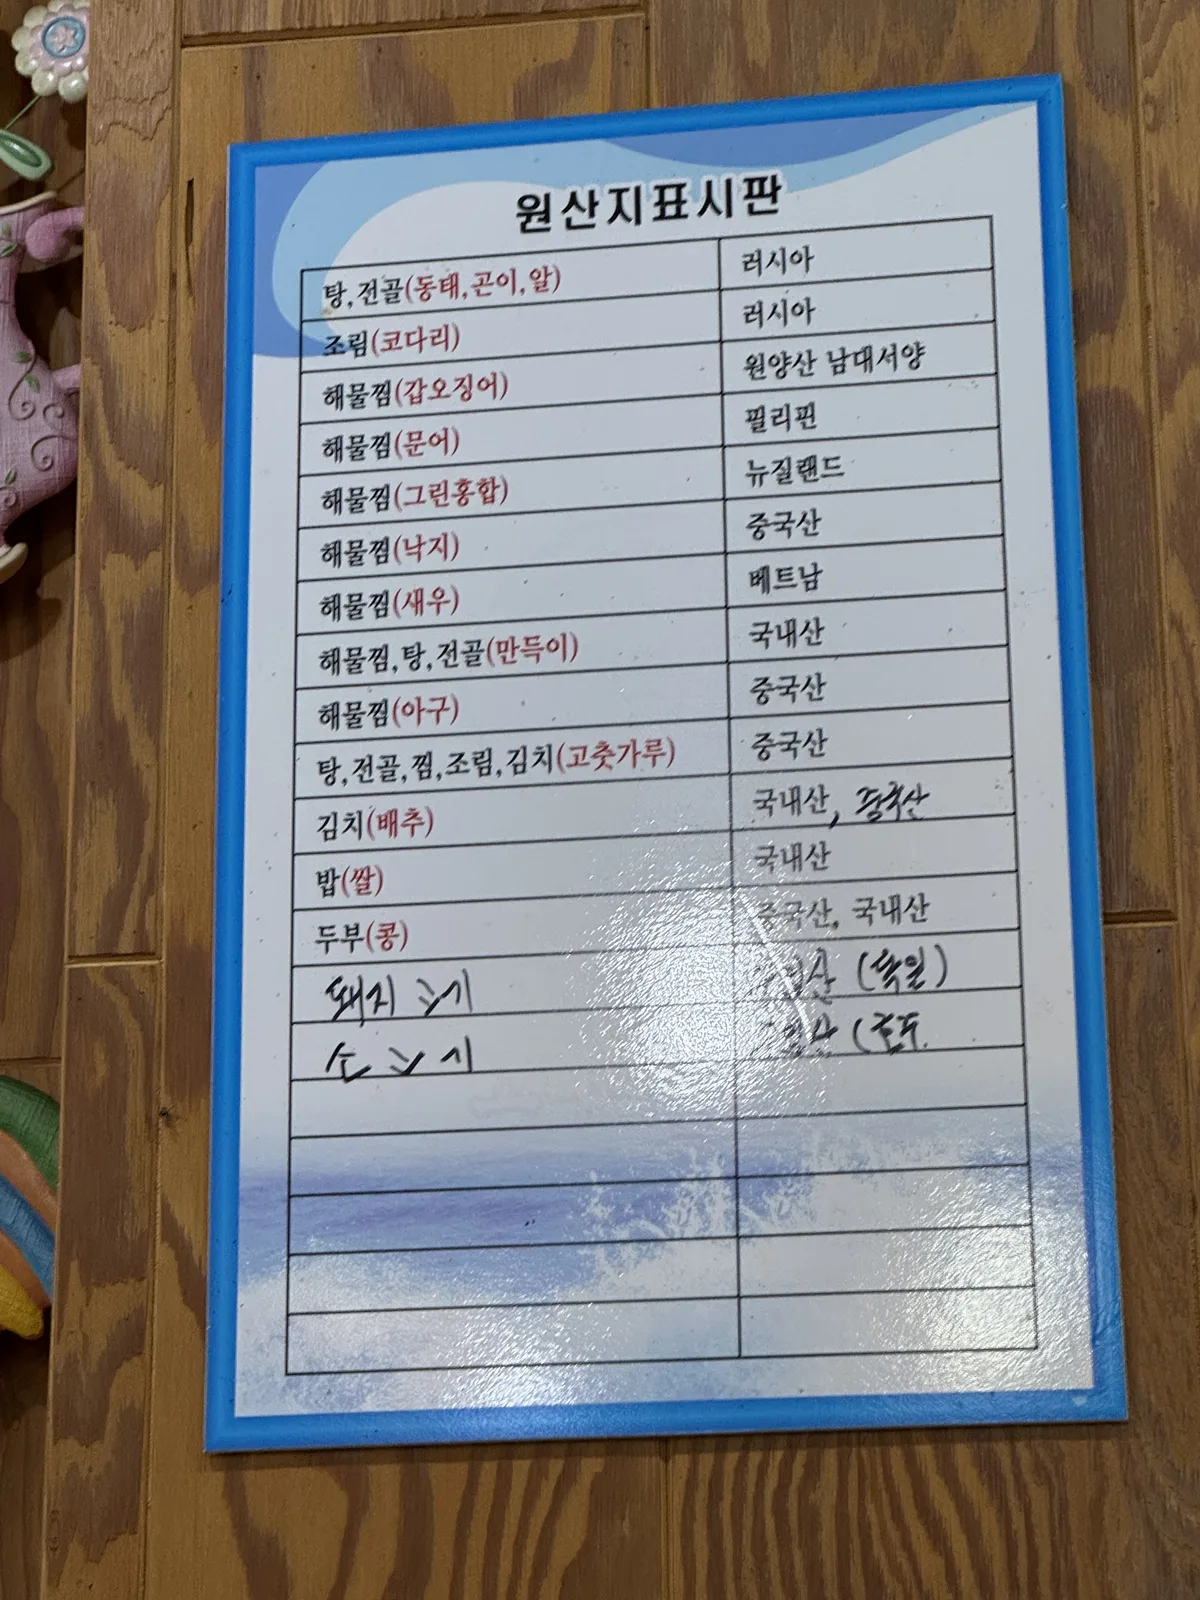 원산지표시판
탕,전골(동태,곤이,알) 러시아
조림(코다리) 러시아
해물찜(갑오징어) 원양산 남대서양
해물찜(문어) 필리핀
해물찜(그린홍합) 뉴질랜드
해물찜(낙지) 중국산
해물찜(새우) 베트남
해물찜,탕,전골(만득이) 국내산
해물찜(아구) 중국산
탕,전골,찜,조림,김치(고춧가루) 중국산
김치(배추) 국내산, 중국산
밥(쌀) 국내산
두부(콩) 중국산, 국내산
돼지고기 (독일)
소고기